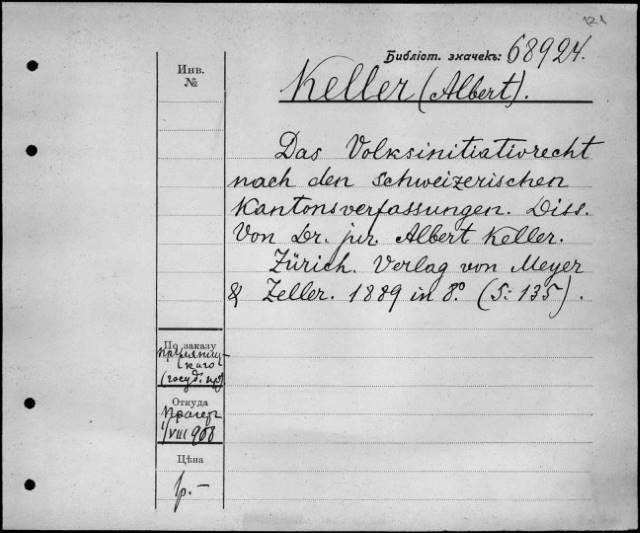 121
Библіот. значекъ: 68924.
Инв.
№
Keller (Albert).
Das Volksinitiativrecht
nach den schweizerischen
Kantonsverfassungen. Diss.
Von Dr. jur. Albert Keller.
Zürich. Verlag von Meyer
& Zeller. 1889 in 8º. (S: 135).
По заказу
(госуд. пр.)
Откуда
Прагеръ
1/VIII 908
Цѣна
1р.-